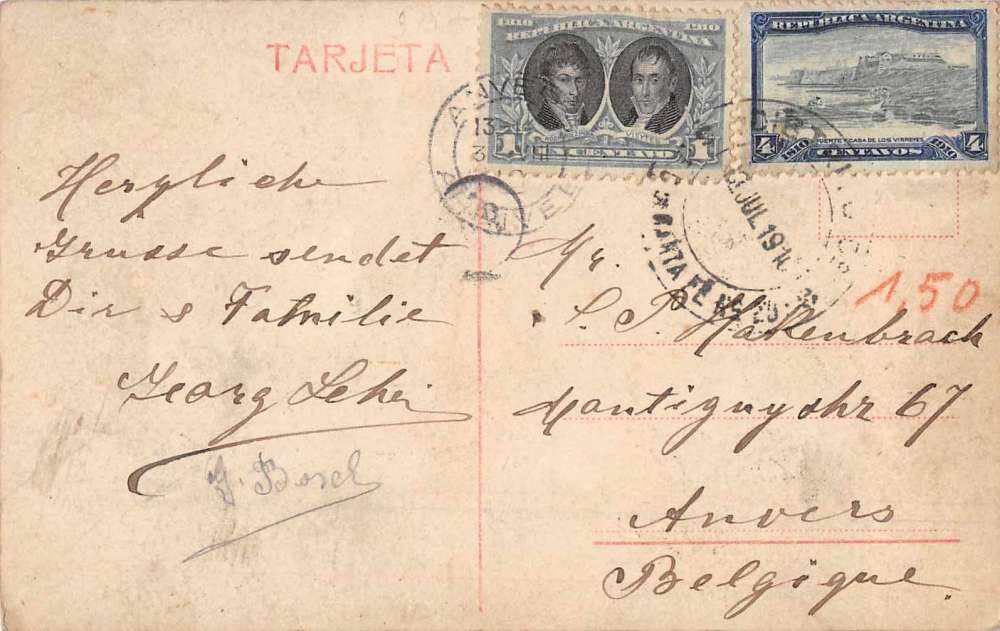 TARJETA
1810 REPUBLICA ARGENTINA 1910
1 UN CENTAVO 1
REPUBLICA ARGENTINA
FUERTE Y CASA DE LOS VIRREYES
4 1810 CENTAVOS 1910 4
ANVERS
13
JUL 1910
SANTA FE
1,50
Herzliche
Grusse sendet
Dir & Familie
Georg
G. Bosch
Mr.
C. P. Hakenbrach
Montignystr 67
Anvers
Belgique